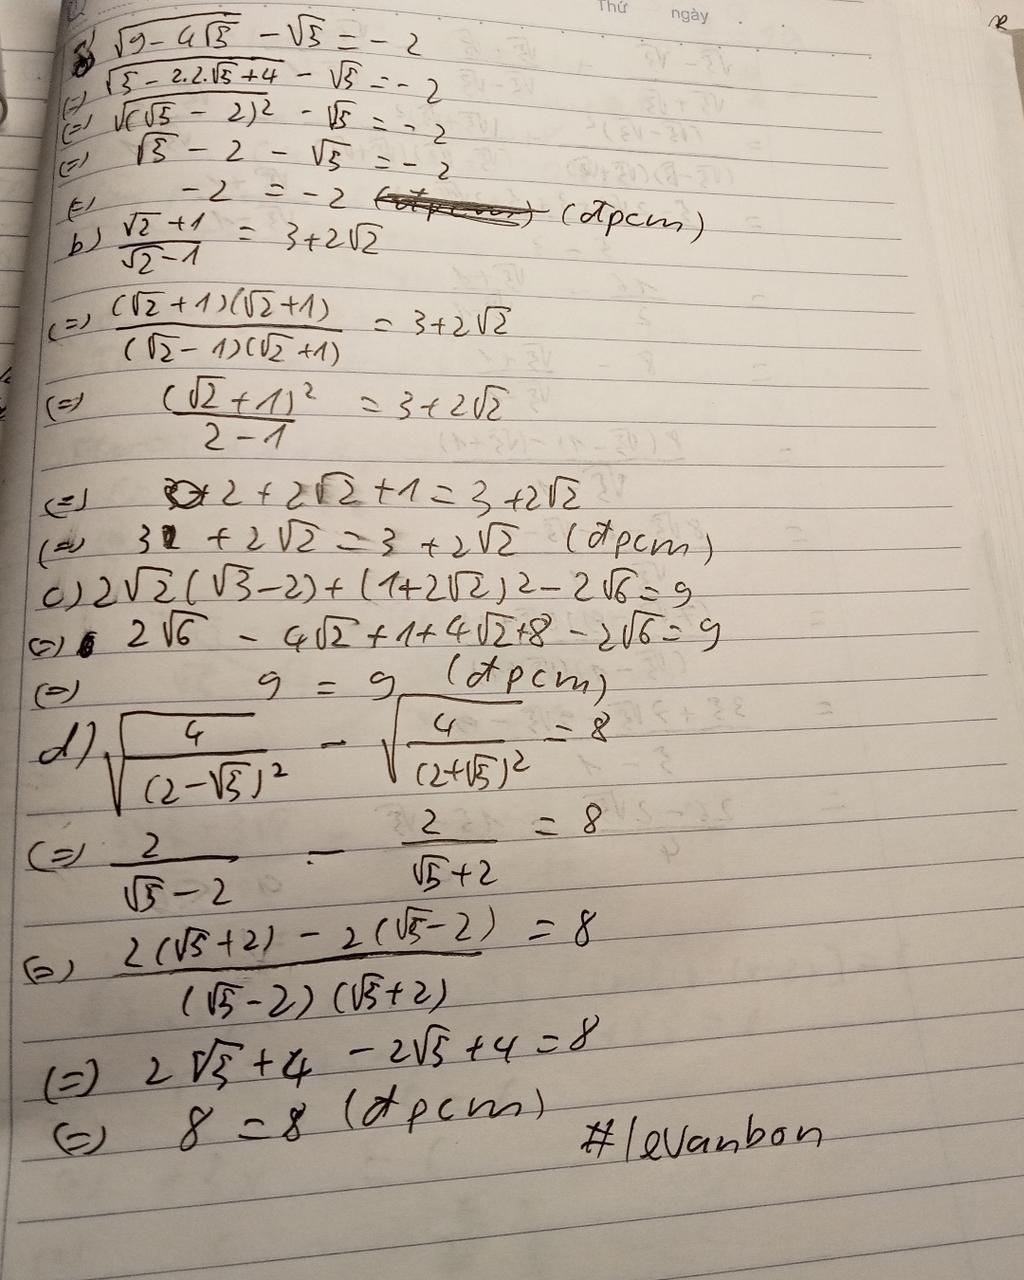 Thứ ngày
a) √(9-4√5) - √5 = -2
(=) √(5-2.2.√5+4) - √5 = -2
(=) √((√5-2)²) - √5 = -2
(=) √5 - 2 - √5 = -2
(=) -2 = -2 (đpcm)
b) (√2+1)/(√2-1) = 3+2√2
(=) ((√2+1)(√2+1))/((√2-1)(√2+1)) = 3+2√2
(=) (√2+1)²/(2-1) = 3+2√2
(=) 2+2√2+1 = 3+2√2
(=) 3+2√2 = 3+2√2 (đpcm)
c) 2√2(√3-2)+(1+2√2)2-2√6=9
(=) 2√6 - 4√2+1+4√2+8-2√6=9
(=) 9 = 9 (đpcm)
d) √(4/(2-√5)²) - √(4/(2+√5)²) = 8
(=) 2/(√5-2) - 2/(√5+2) = 8
(=) (2(√5+2) - 2(√5-2))/((√5-2)(√5+2)) = 8
(=) 2√5+4 - 2√5+4 = 8
(=) 8 = 8 (đpcm)
#levanbon